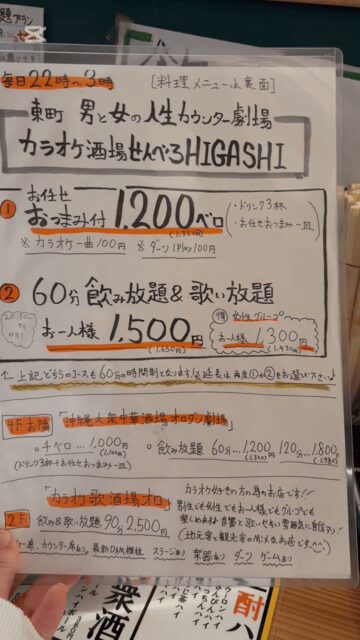 毎日22時〜3時
[料理メニューは裏面]
東町 男と女の人生カウンター劇場
カラオケ酒場せんべろHIGASHI
① お任せ
おつまみ付 1,200ベロ
(1,320円)
・ドリンク3杯
・お任せおつまみ一皿
※カラオケ一曲100円 ※ダーツ1Play100円
② 60分 飲み放題&歌い放題
お一人様 1,500円
(1,650円)
得 女性グループ
お一人様 1,300円
(1,430円)
↑上記どちらのコースも60分の時間制となります!※延長は再度①か②をお選び下さい
4Fお隣 「沖縄大衆中華酒場オロダン劇場」
・千ベロ…1,000円
(1,100円)
(ドリンク3杯+お任せおつまみ一皿)
・飲み放題 60分…1,200 120分…1,800
(1,320円) (1,980)
「カラオケ歌酒場オロ」
2F 飲み&歌い放題 90分 2,500円
カラオケ好きの方の為のお店です!!
男性でも女性でもお一人様でもグループでも
楽しめる
(地元客、観光客のMIXなお店です^^)
カウンター席あり 最新DAM機種 ステージあり 楽器あり ダーツ ゲームあり
酎
衆酒